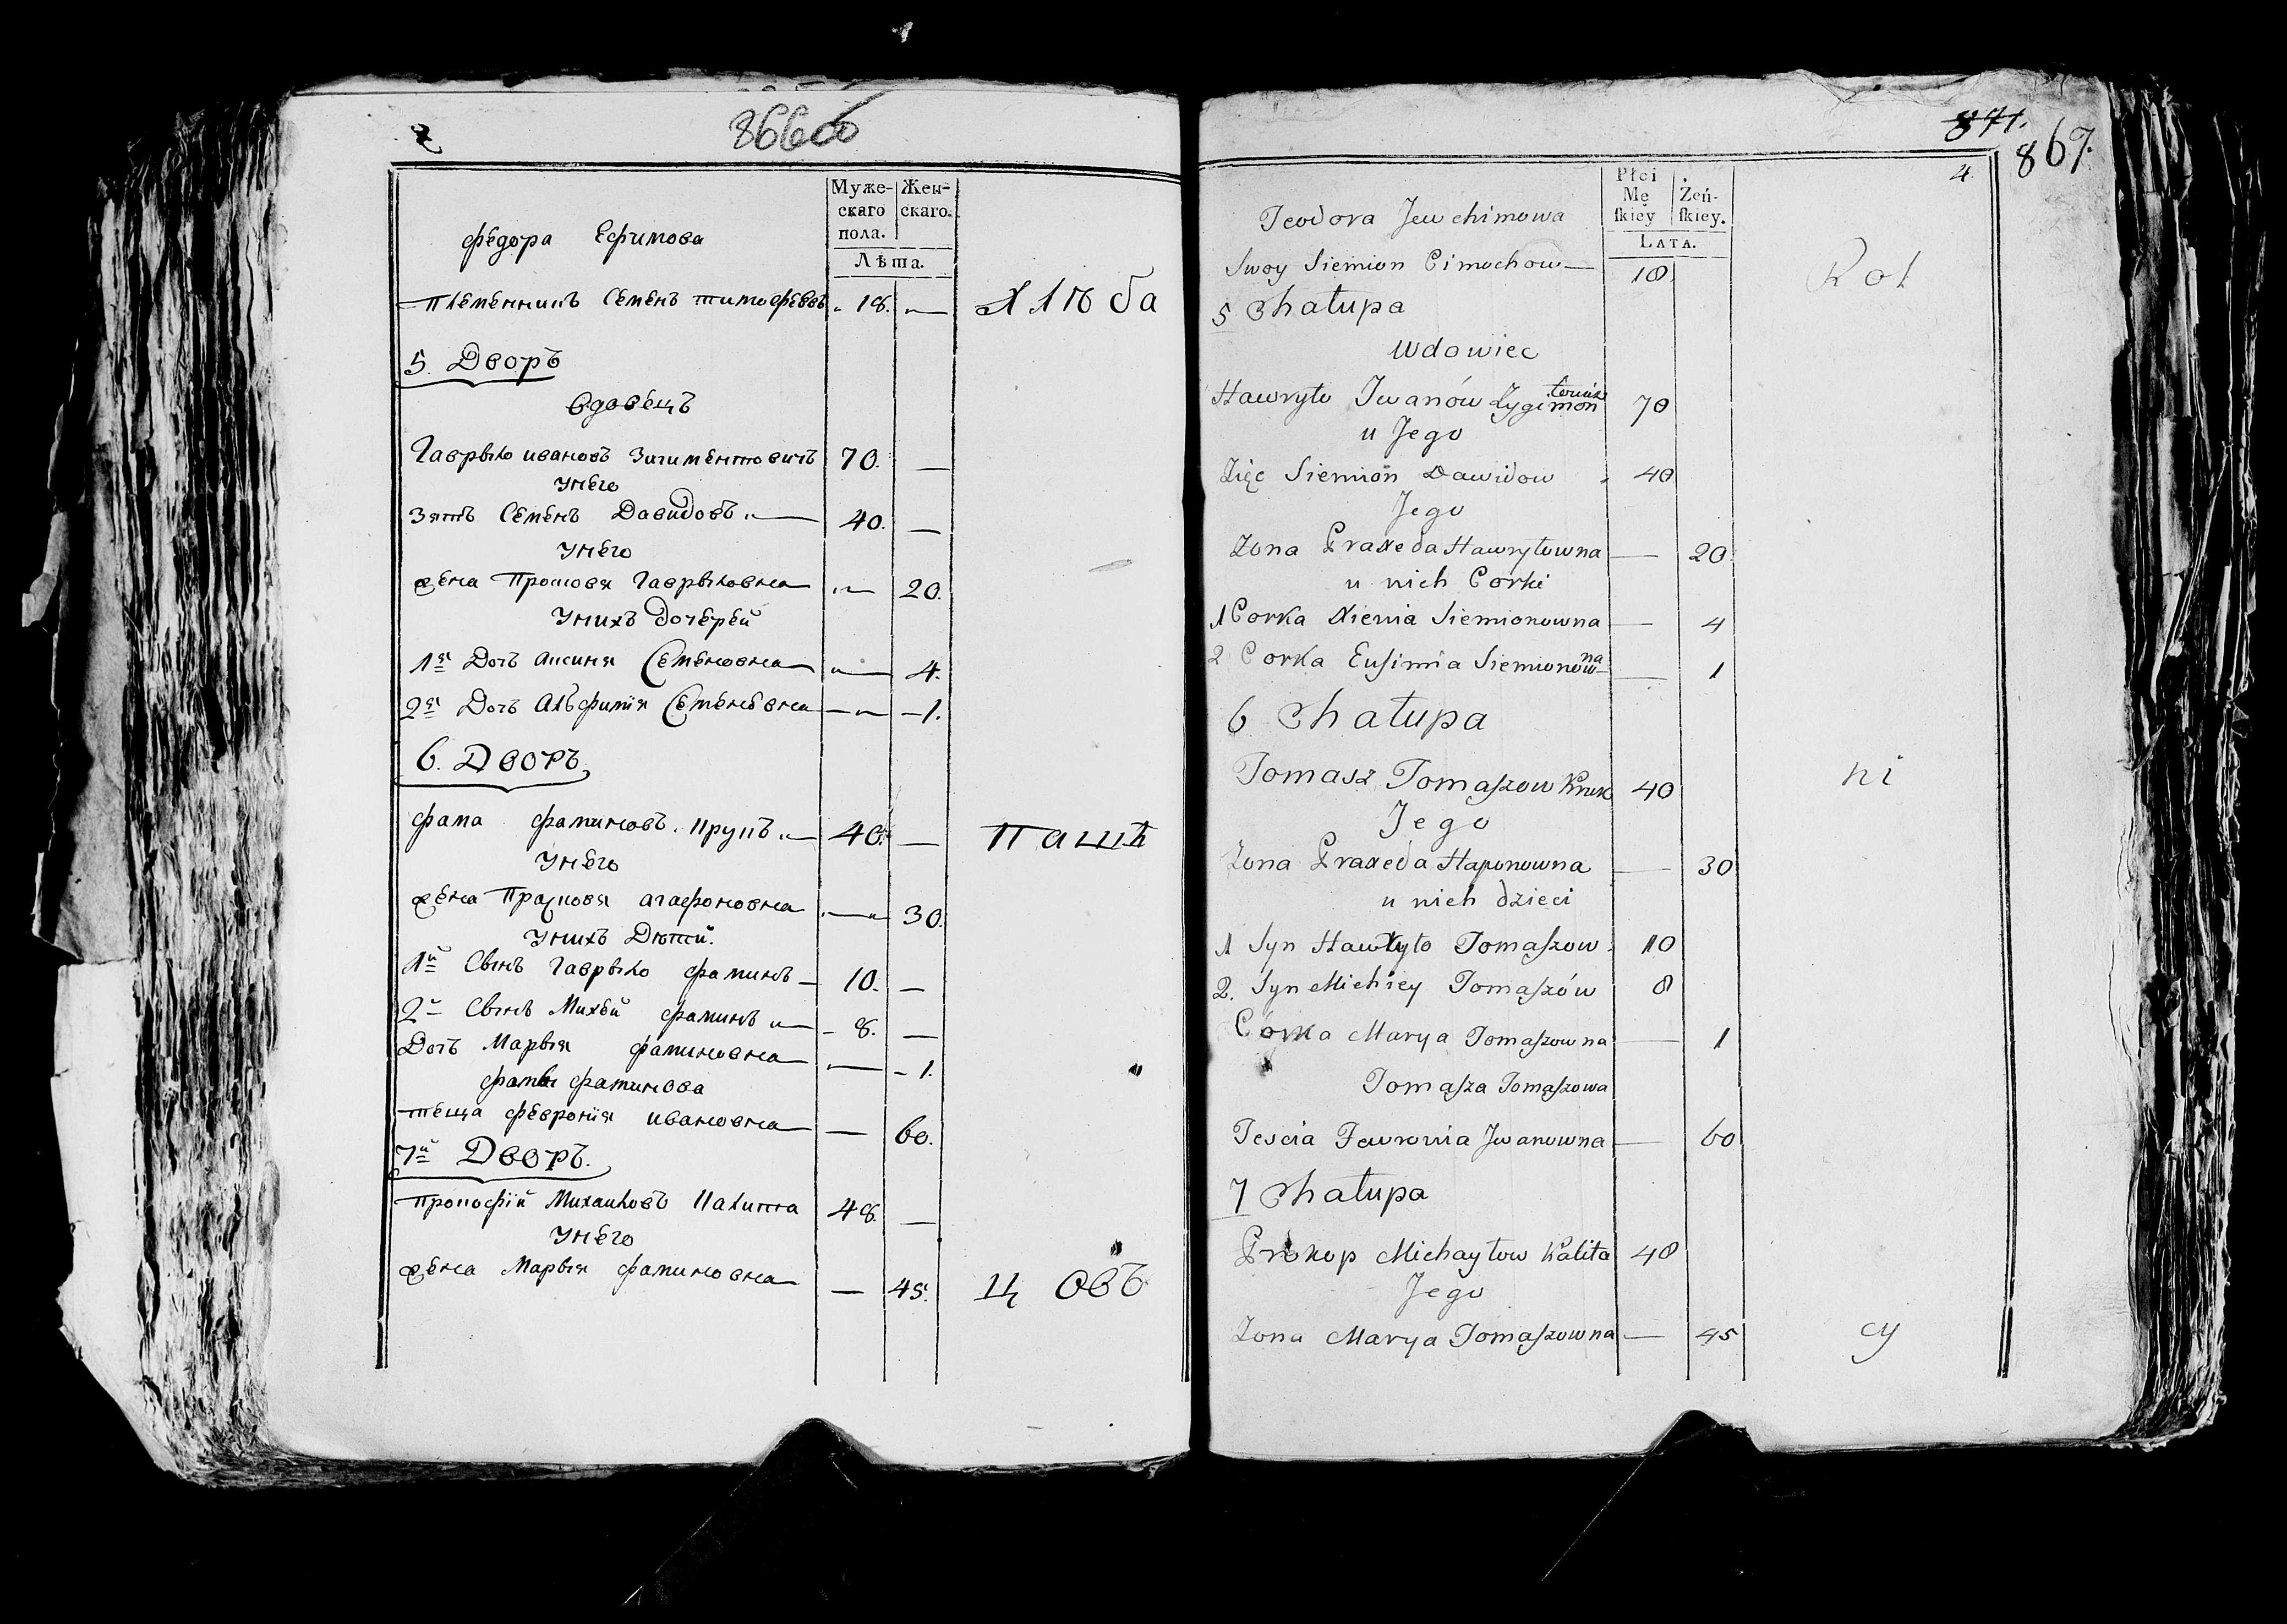 866об
Муже- Жен-
скаго скаго.
пола.
Лѣта.
Федора Ефимова
Племенникъ Семенъ тимофеевъ 18. —
Хлѣба
5. Дворъ
Вдовецъ
Гаврыло ивановъ Зигиментовичъ 70. —
У него
Зять Семенъ Давидовъ 40. —
У него
жена Просковя Гаврыловна — 20.
У нихъ Дочерей
1я Дочь Аксиня Семеновна — 4.
2я Дочь Альфимія Семеновна — 1.
6. Дворъ
Фама Фаминовъ Крукъ 40. —
Пашѣ
У него
жена Прасковя агафоновна — 30.
У нихъ Дѣтей.
1й Сынъ Гаврыло Фаминъ 10. —
2й Сынъ Михей Фаминъ 8. —
Дочь Марыя Фаминовна — 1.
Фамы Фаминова
теща Феврония ивановна — 60.
7й Дворъ.
Прокофій Михаиловъ Калита 48. —
У него
жена Марыя Фаминовна — 45.
Ц овъ
871.
867.
4
Płci
Mę Żeń-
ſkiey ſkiey.
LATA.
Teodora Jewchimowa
Swoy Siemion Cimochow — 18
Rol
5 Chałupa
Wdowiec
Hawryło Jwanów Zygimontowicz 70
u Jego
Zięc Siemion Dawidow 40
Jego
Żona Praxeda Hawryłowna — 20
u nich Corki
1 Corka Xienia Siemionowna — 4
2 Corka Eufimia Siemionowna — 1
6 Chałupa
Tomasz Tomaſzow Kruk 40
ni
Jego
Żona Praxeda Haponowna — 30
u nich dzieci
1 Syn Hawryło Tomaſzow 10
2. Syn Michiey Tomaſzów 8
Córka Marya Tomaſzowna — 1
Tomaſza Tomaſzowa
Tescia Fewronia Jwanowna — 60
7 Chałupa
Prokop Michayłow Kalita 48
Jego
Żona Marya Tomaſzowna — 45
cy